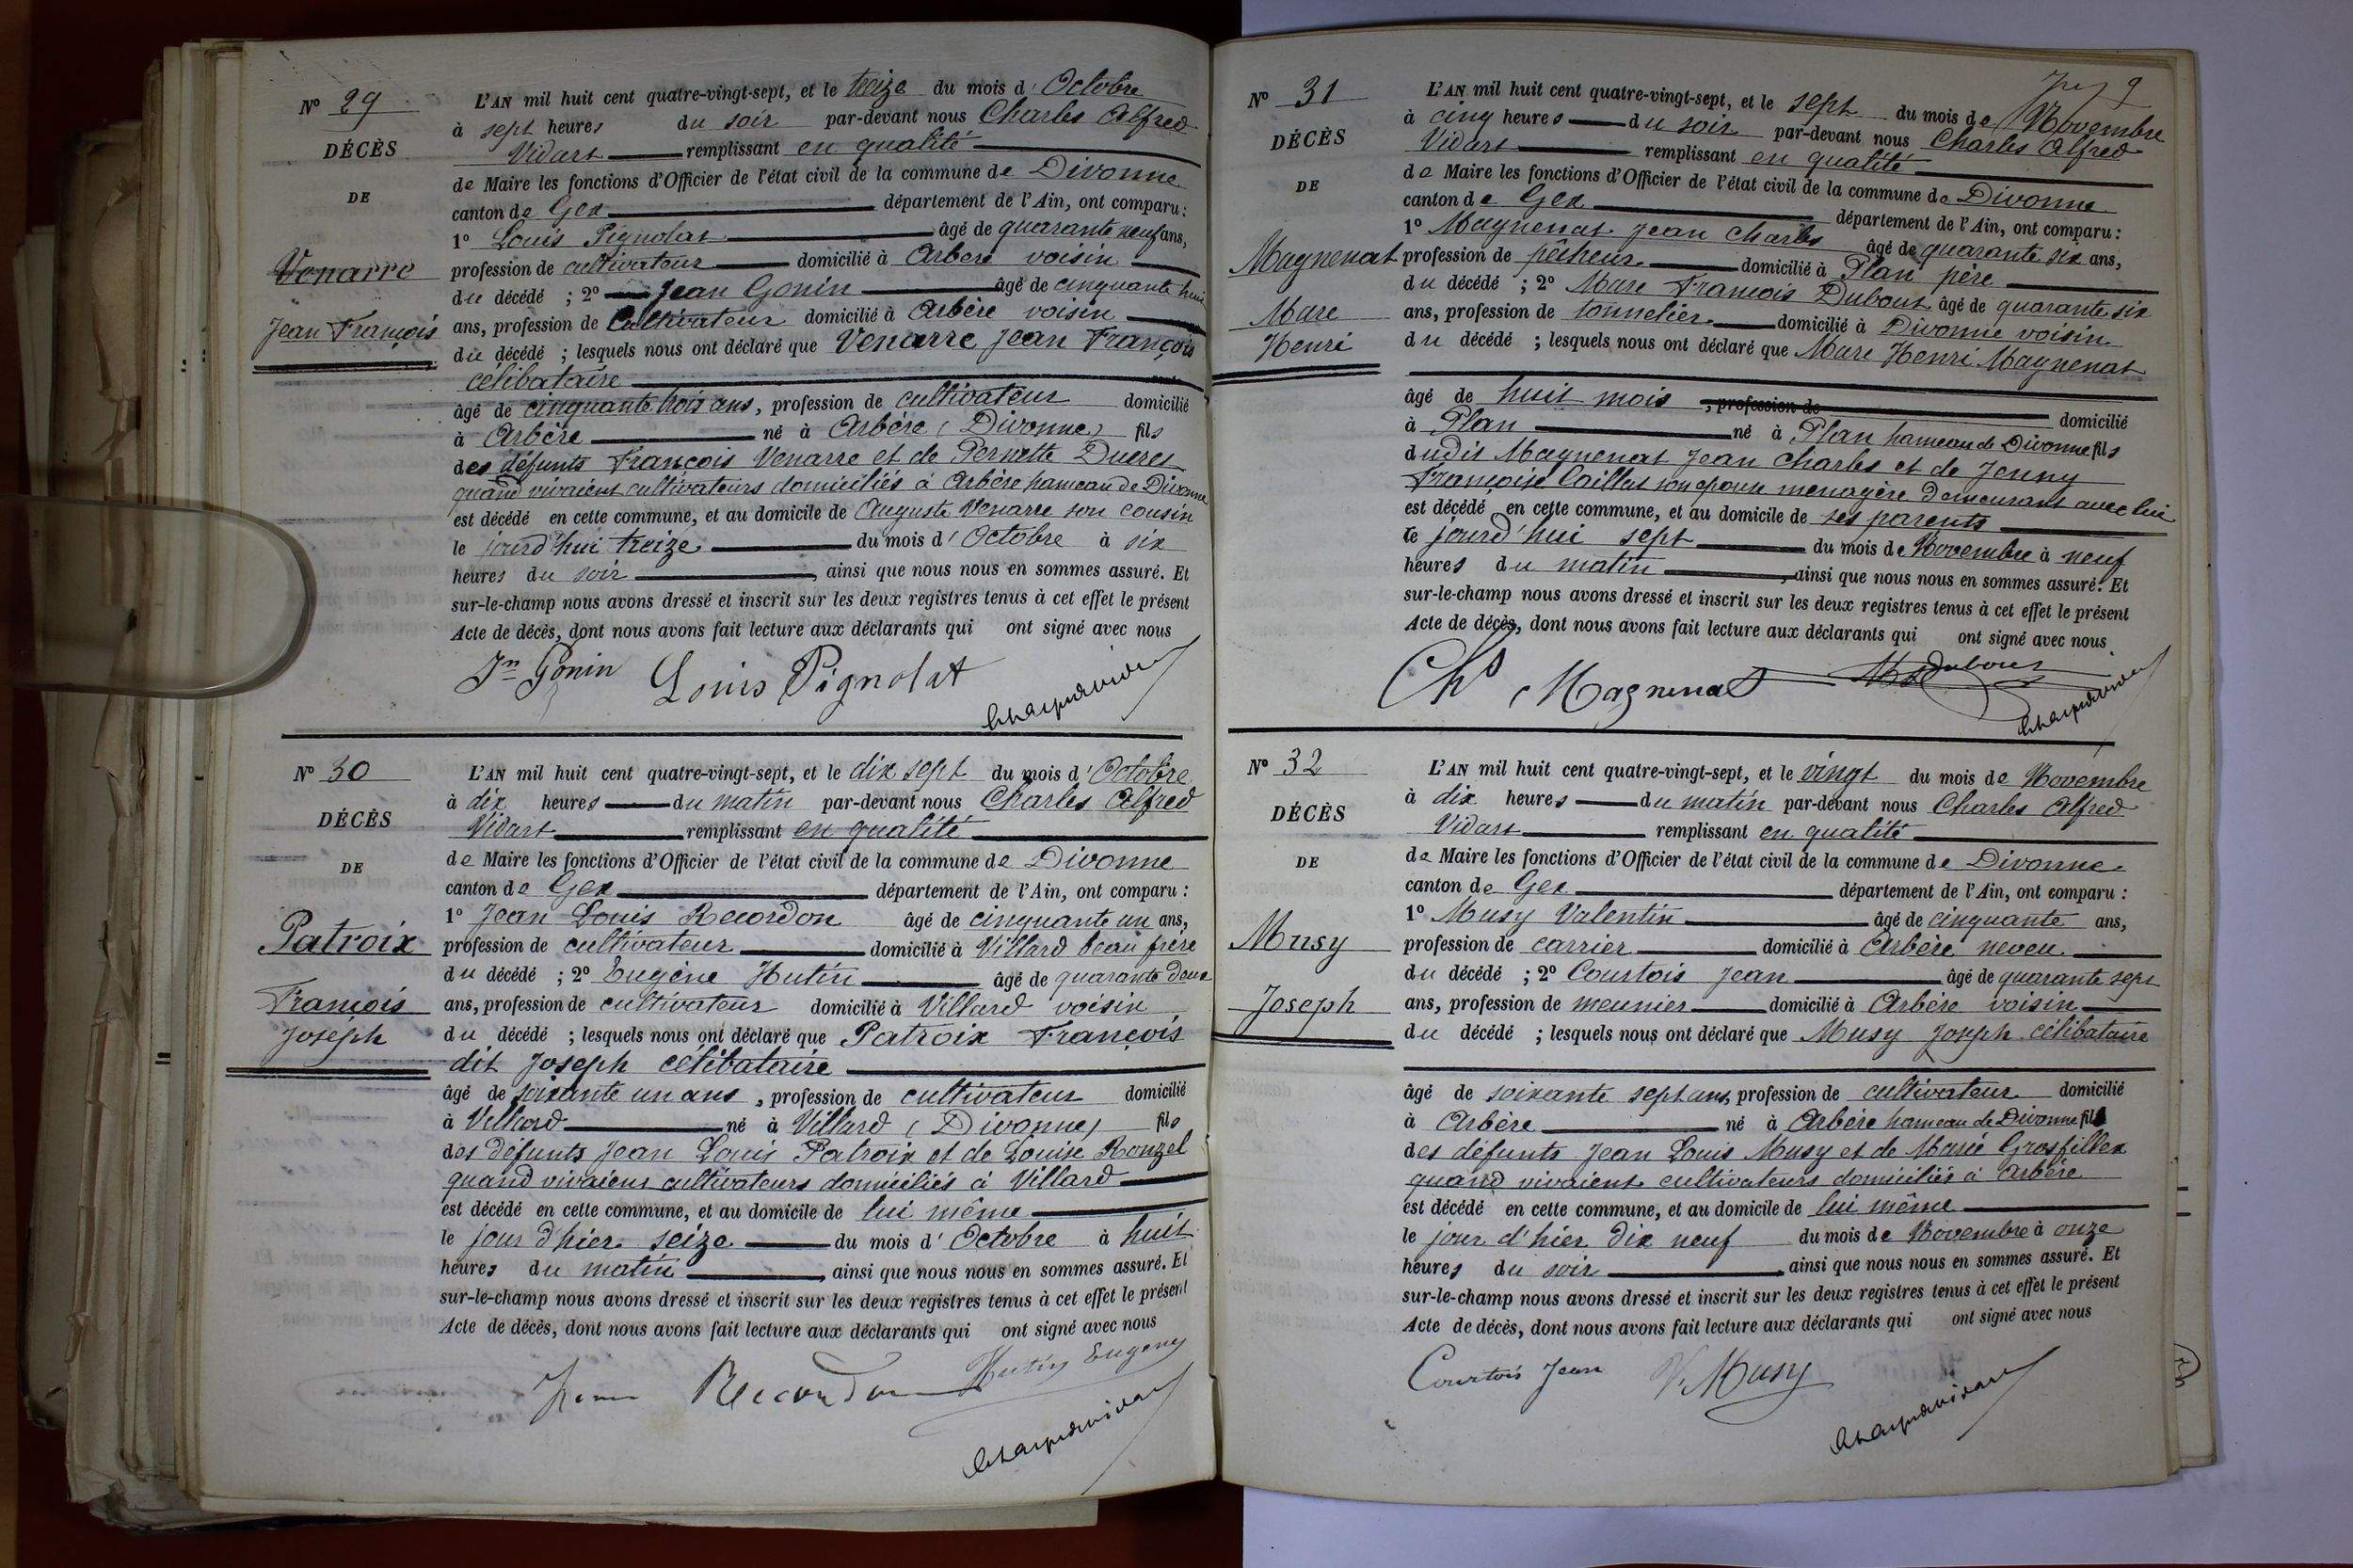 N° 29
DÉCÈS
DE
Venarre
Jean François
L'AN mil huit cent quatre-vingt-sept, et le treize du mois d'Octobre
à sept heures du soir par-devant nous Charles Alfred
Vidart remplissant en qualité
de Maire les fonctions d'Officier de l'état civil de la commune de Divonne
canton de Gex département de l'Ain, ont comparu :
1° Louis Pignolat âgé de quarante neuf ans,
profession de cultivateur domicilié à Arbère voisin
du décédé ; 2° Jean Gonin âgé de cinquante huit
ans, profession de Cultivateur domicilié à Arbère voisin
du décédé ; lesquels nous ont déclaré que Venarre Jean François
célibataire
âgé de cinquante trois ans, profession de cultivateur domicilié
à Arbère né à Arbère (Divonne) fils
des défunts François Venarre et de Pernette Ducret
quand vivaient cultivateurs domiciliés à Arbère hameau de Divonne
est décédé en cette commune, et au domicile de Auguste Venarre son cousin
le jourd'hui treize du mois d'Octobre à six
heures du soir, ainsi que nous nous en sommes assuré. Et
sur-le-champ nous avons dressé et inscrit sur les deux registres tenus à cet effet le présent
Acte de décès, dont nous avons fait lecture aux déclarants qui ont signé avec nous
Jn Gonin Louis Pignolat
N° 30
DÉCÈS
DE
Patroix
François
Joseph
L'AN mil huit cent quatre-vingt-sept, et le dix sept du mois d'Octobre
à dix heures du matin par-devant nous Charles Alfred
Vidart remplissant en qualité
de Maire les fonctions d'Officier de l'état civil de la commune de Divonne
canton de Gex département de l'Ain, ont comparu :
1° Jean Louis Recordon âgé de cinquante un ans,
profession de cultivateur domicilié à Villard beau frère
du décédé ; 2° Eugène Hutin âgé de quarante deux
ans, profession de cultivateur domicilié à Villard voisin
du décédé ; lesquels nous ont déclaré que Patroix François
dit Joseph célibataire
âgé de soixante un ans, profession de cultivateur domicilié
à Villard né à Villard (Divonne) fils
des défunts Jean Louis Patroix et de Louise Rouzel
quand vivaient cultivateurs domiciliés à Villard
est décédé en cette commune, et au domicile de lui même
le jour d'hier seize du mois d'Octobre à huit
heures du matin, ainsi que nous nous en sommes assuré. Et
sur-le-champ nous avons dressé et inscrit sur les deux registres tenus à cet effet le présent
Acte de décès, dont nous avons fait lecture aux déclarants qui ont signé avec nous
Recordon Hutin Eugene
9
N° 31
DÉCÈS
DE
Magnenat
Marc
Henri
L'AN mil huit cent quatre-vingt-sept, et le sept du mois de Novembre
à cinq heures du soir par-devant nous Charles Alfred
Vidart remplissant en qualité
de Maire les fonctions d'Officier de l'état civil de la commune de Divonne
canton de Gex département de l'Ain, ont comparu :
1° Magnenat Jean Charles âgé de quarante six ans,
profession de pêcheur domicilié à Plan père
du décédé ; 2° Marc François Dubout âgé de quarante six
ans, profession de tonnelier domicilié à Divonne voisin
du décédé ; lesquels nous ont déclaré que Marc Henri Magnenat
âgé de huit mois, profession de domicilié
à Plan né à Plan hameau de Divonne fils
dudit Magnenat Jean Charles et de Jenny
Françoise Caillat son epouse menagère demeurant avec lui
est décédé en cette commune, et au domicile de ses parents
le jourd'hui sept du mois de Novembre à neuf
heures du matin, ainsi que nous nous en sommes assuré. Et
sur-le-champ nous avons dressé et inscrit sur les deux registres tenus à cet effet le présent
Acte de décès, dont nous avons fait lecture aux déclarants qui ont signé avec nous
Chs Magnenat
N° 32
DÉCÈS
DE
Musy
Joseph
L'AN mil huit cent quatre-vingt-sept, et le vingt du mois de Novembre
à dix heures du matin par-devant nous Charles Alfred
Vidart remplissant en qualité
de Maire les fonctions d'Officier de l'état civil de la commune de Divonne
canton de Gex département de l'Ain, ont comparu :
1° Musy Valentin âgé de cinquante ans,
profession de carrier domicilié à Arbère neveu
du décédé ; 2° Courtois Jean âgé de quarante sept
ans, profession de meunier domicilié à Arbère voisin
du décédé ; lesquels nous ont déclaré que Musy Joseph célibataire
âgé de soixante sept ans, profession de cultivateur domicilié
à Arbère né à Arbère hameau de Divonne fils
des défunts Jean Louis Musy et de Marie Grosfillex
quand vivaient cultivateurs domiciliés à Arbère
est décédé en cette commune, et au domicile de lui même
le jour d'hier dix neuf du mois de Novembre à onze
heures du soir, ainsi que nous nous en sommes assuré. Et
sur-le-champ nous avons dressé et inscrit sur les deux registres tenus à cet effet le présent
Acte de décès, dont nous avons fait lecture aux déclarants qui ont signé avec nous
Courtois Jean V. Musy